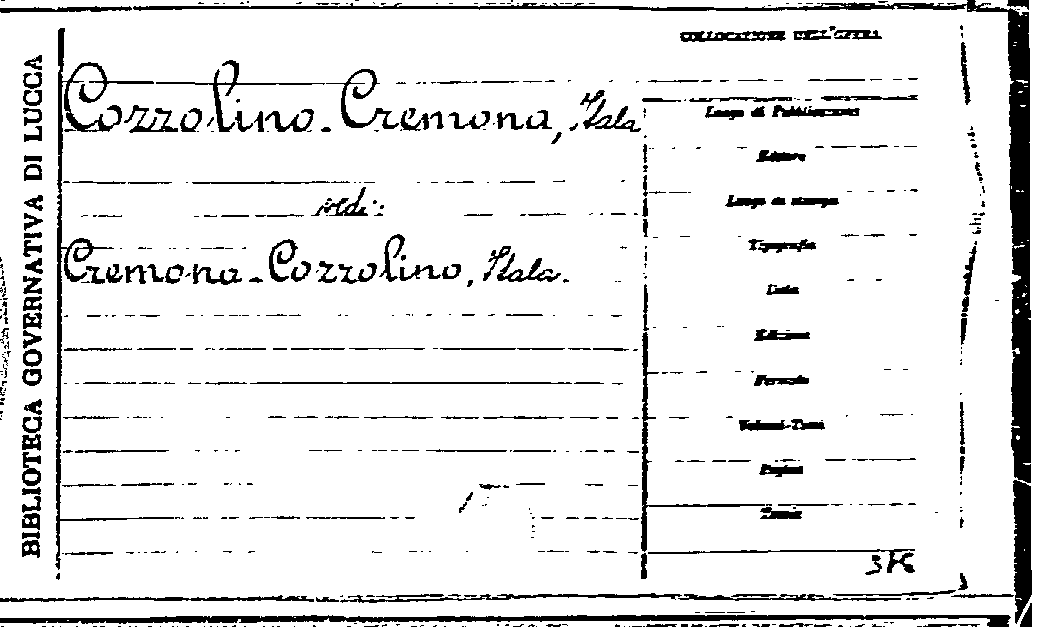 BIBLIOTECA GOVERNATIVA DI LUCCA
COLLOCAZIONE DELL'OPERA
Cozzolino-Cremona, Itala
vedi:
Cremona-Cozzolino, Itala.
Luogo di Pubblicazione
Editore
Luogo di stampa
Tipografia
Data
Edizione
Formato
Volumi-Tomi
Pagine